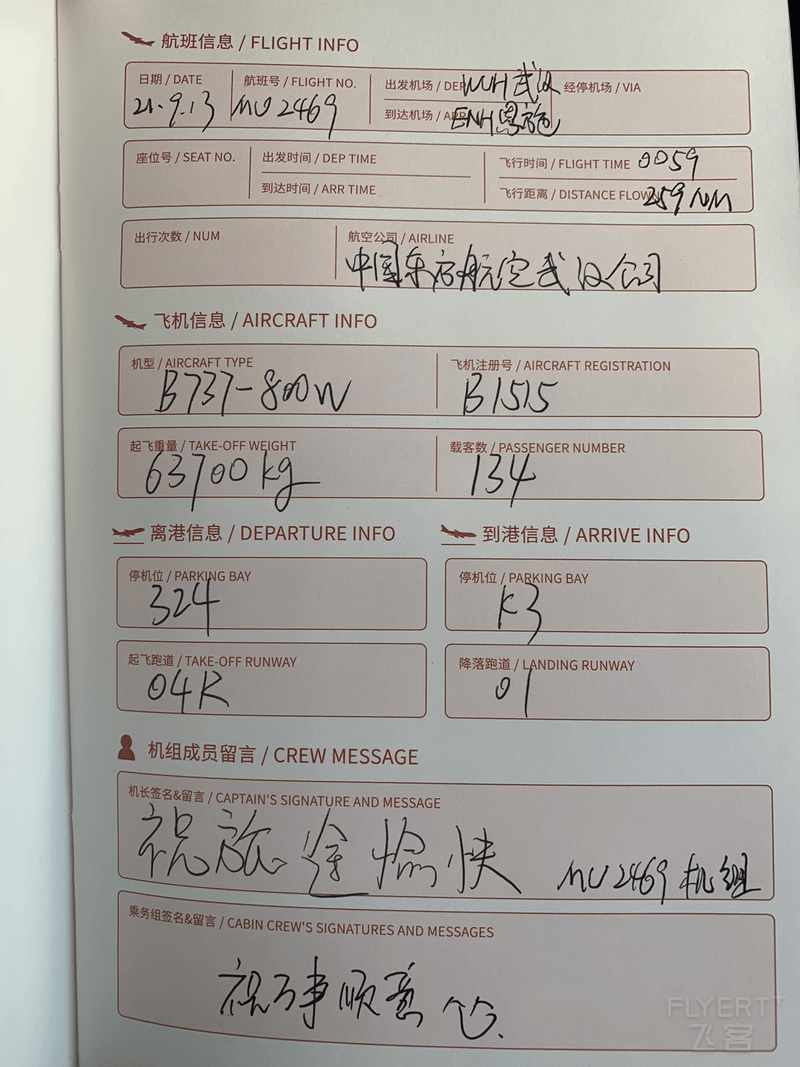 航班信息 / FLIGHT INFO
日期 / DATE
21.9.13
航班号 / FLIGHT NO.
MU2469
出发机场 / DEP WUH 武汉
到达机场 / ARR ENH 恩施
经停机场 / VIA
座位号 / SEAT NO.
出发时间 / DEP TIME
到达时间 / ARR TIME
飞行时间 / FLIGHT TIME 0059
飞行距离 / DISTANCE FLOWN 259 NM
出行次数 / NUM
航空公司 / AIRLINE
中国东方航空武汉公司
飞机信息 / AIRCRAFT INFO
机型 / AIRCRAFT TYPE
B737-800W
飞机注册号 / AIRCRAFT REGISTRATION
B1515
起飞重量 / TAKE-OFF WEIGHT
63700kg
载客数 / PASSENGER NUMBER
134
离港信息 / DEPARTURE INFO
停机位 / PARKING BAY
324
起飞跑道 / TAKE-OFF RUNWAY
04R
到港信息 / ARRIVE INFO
停机位 / PARKING BAY
K3
降落跑道 / LANDING RUNWAY
01
机组成员留言 / CREW MESSAGE
机长签名&留言 / CAPTAIN'S SIGNATURE AND MESSAGE
祝旅途愉快 MU2469 机组
乘务组签名&留言 / CABIN CREW'S SIGNATURES AND MESSAGES
祝万事顺意
FLYERT
飞客